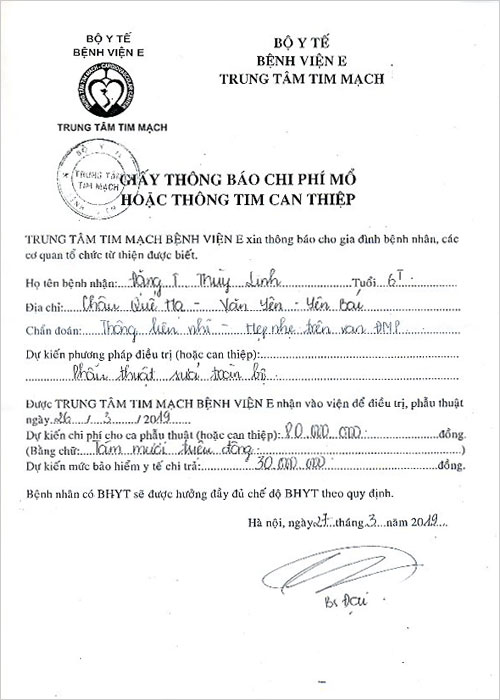 BỘ Y TẾ
BỆNH VIỆN E
TRUNG TÂM TIM MẠCH
BỘ Y TẾ
BỆNH VIỆN E
TRUNG TÂM TIM MẠCH
TRUNG TÂM
TIM MẠCH
GIẤY THÔNG BÁO CHI PHÍ MỔ
HOẶC THÔNG TIM CAN THIỆP
TRUNG TÂM TIM MẠCH BỆNH VIỆN E xin thông báo cho gia đình bệnh nhân, các
cơ quan tổ chức từ thiện được biết.
Họ tên bệnh nhân: Đặng T Thùy Linh Tuổi: 6T
Địa chỉ: Châu Quế Hạ - Văn Yên - Yên Bái
Chẩn đoán: Thông liên nhĩ - Hẹp nhẹ trên van ĐMP
Dự kiến phương pháp điều trị (hoặc can thiệp):
Phẫu thuật sửa toàn bộ
Được TRUNG TÂM TIM MẠCH BỆNH VIỆN E nhận vào viện để điều trị, phẫu thuật
ngày 26 / 3 / 2019
Dự kiến chi phí cho ca phẫu thuật (hoặc can thiệp): 80.000.000 đồng.
(Bằng chữ: Tám mươi triệu đồng)
Dự kiến mức bảo hiểm y tế chi trả: 30 000 000 đồng.
Bệnh nhân có BHYT sẽ được hưởng đầy đủ chế độ BHYT theo quy định.
Hà nội, ngày 27 tháng 3 năm 2019
Bs Đại